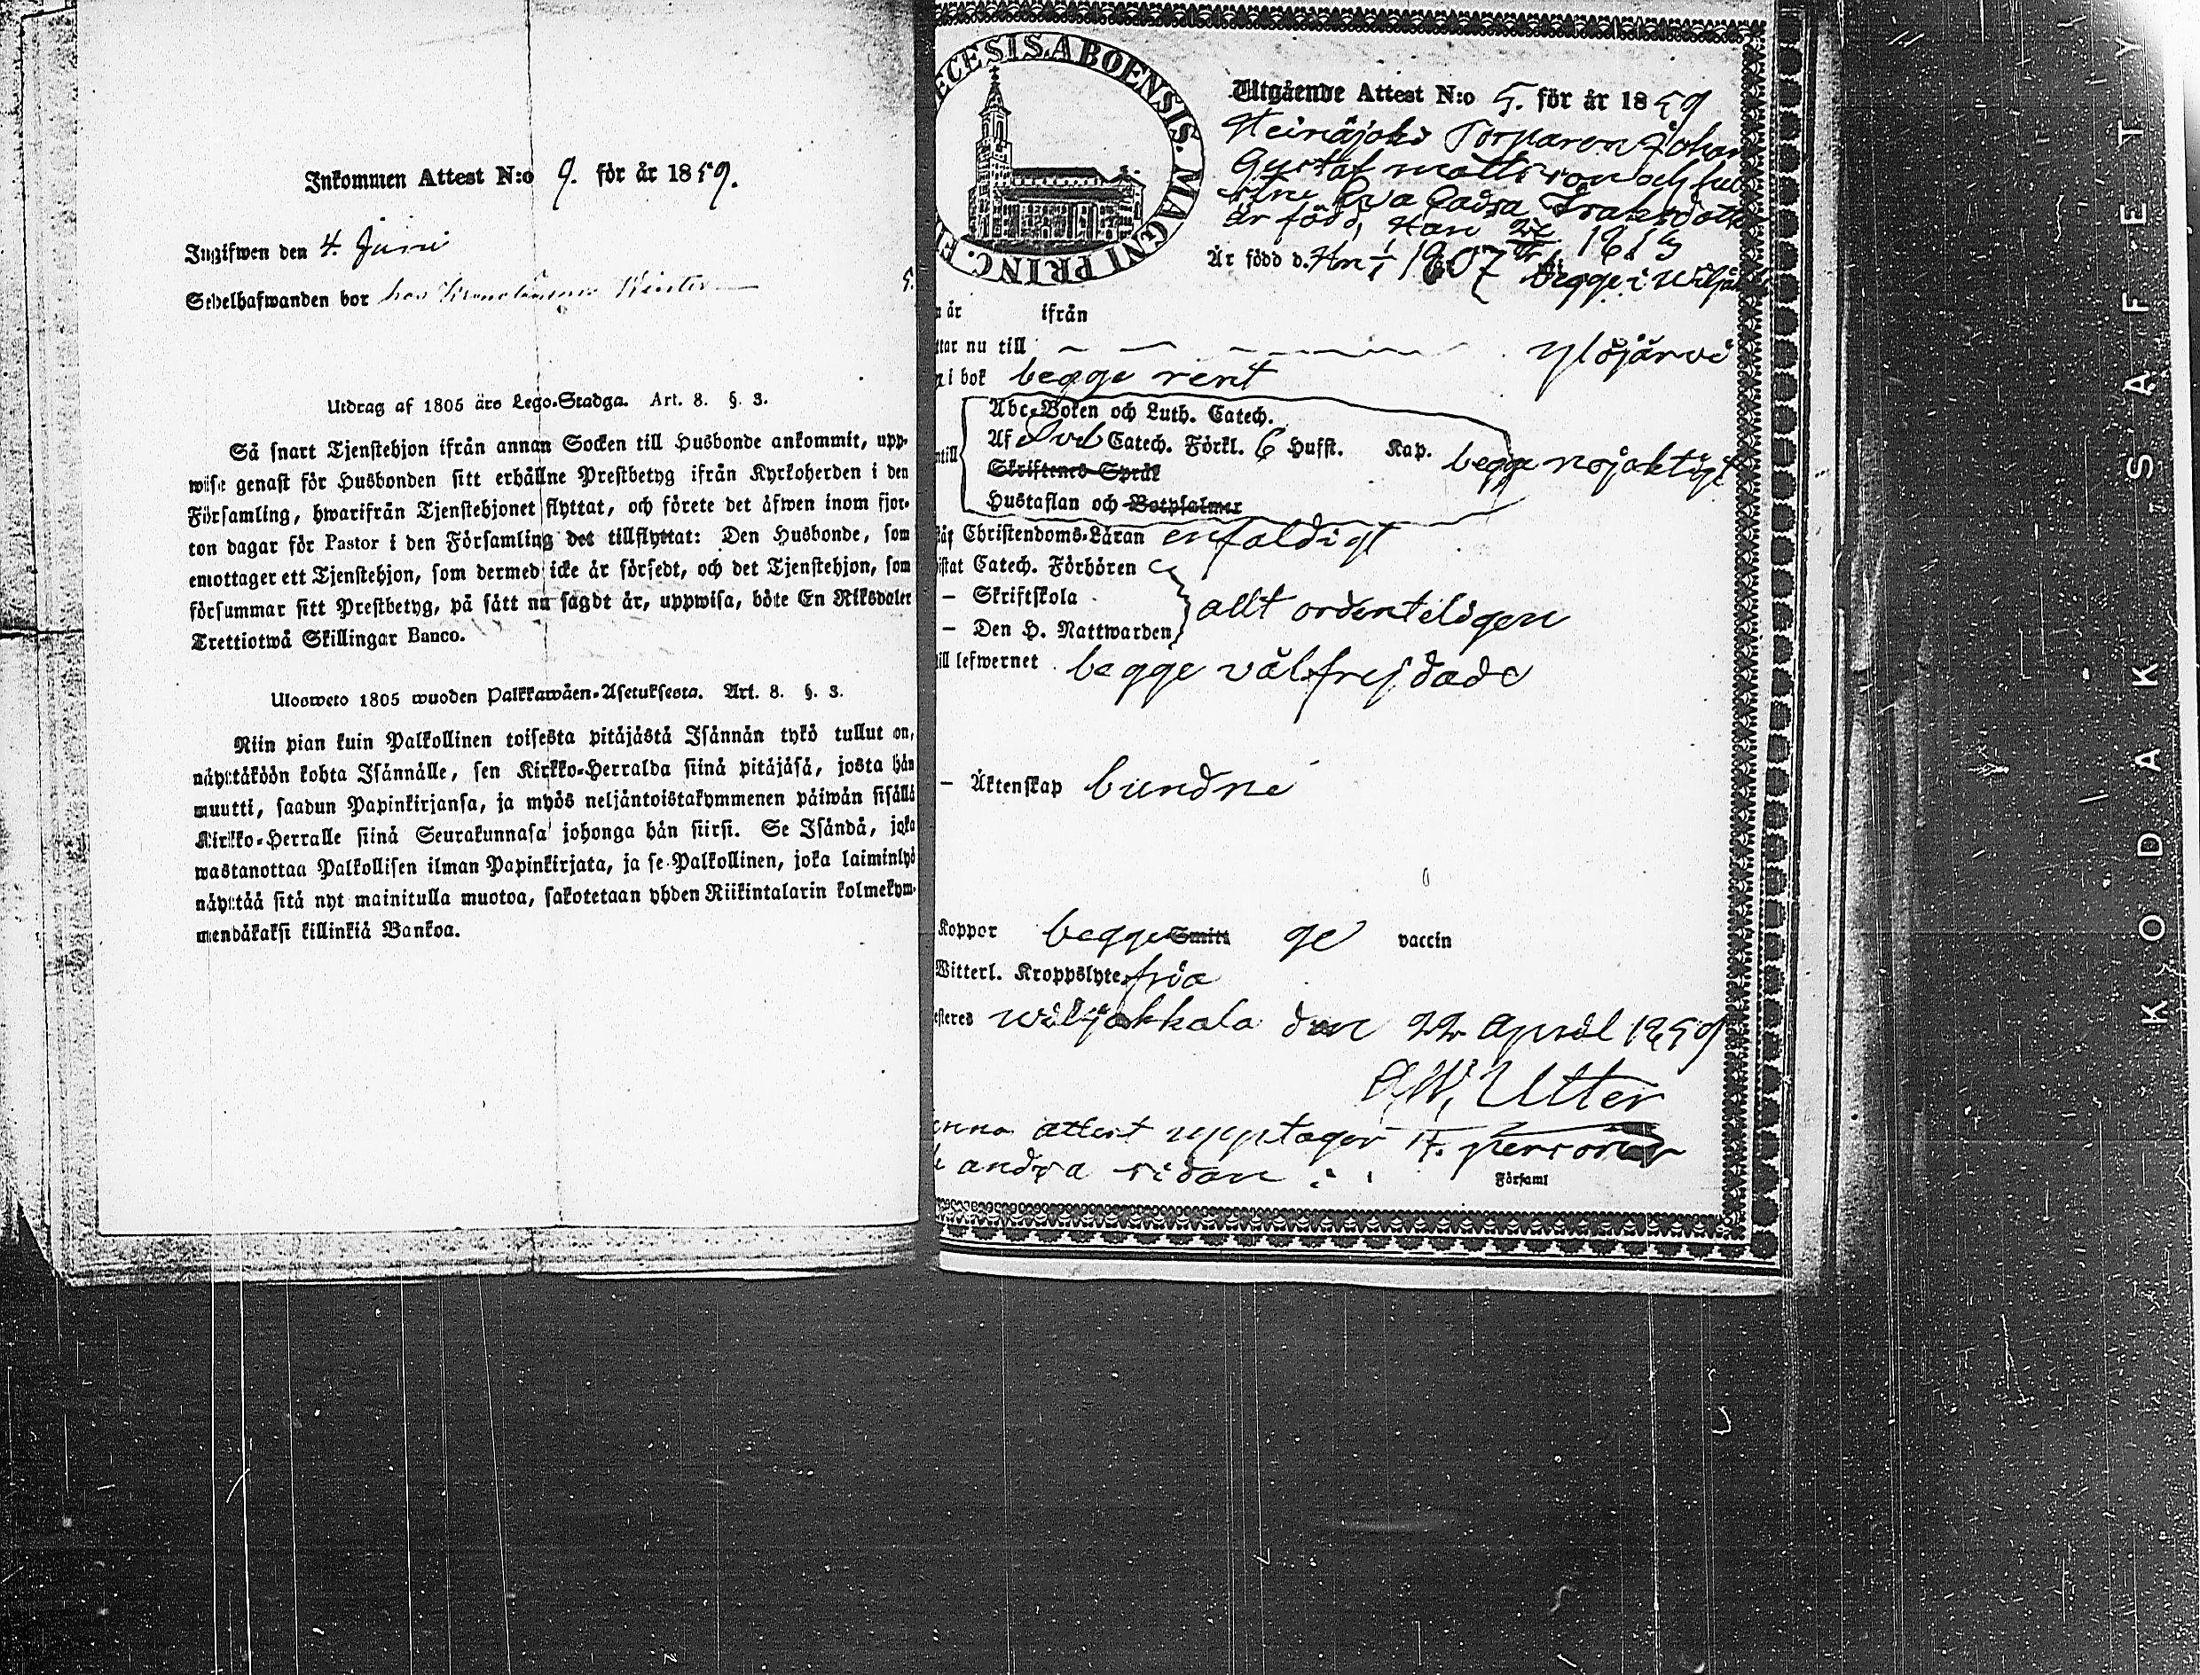 Inkommen Attest N:o 9. för år 1859.
Ingifwen den 4. Juni
Sedelhafwanden bor hos
Utdrag af 1805 års Lego-Stadga. Art. 8. §. 3.
Så snart Tjenstehjon ifrån annan Socken till Husbonde ankommit, upp-
wise genast för Husbonden sitt erhållne Prestbetyg ifrån Kyrkoherden i den
Församling, hwarifrån Tjenstehjonet flyttat, och förete det äfwen inom fjor-
ton dagar för Pastor i den Församling det tillflyttat: Den Husbonde, som
emottager ett Tjenstehjon, som dermed icke är försedt, och det Tjenstehjon, som
försummar sitt Prestbetyg, på sätt nu sagdt är, uppwisa, böte En Riksdaler
Trettiotwå Skillingar Banco.
Ulosweto 1805 wuoden Palkkawäen-Asetuksesta. Art. 8. §. 3.
Niin pian kuin Palkollinen toisesta pitäjästä Isännän tykö tullut on,
näyttäköön kohta Isännälle, sen Kirkko-Herralda siinä pitäjäsä, josta hän
muutti, saadun Papinkirjansa, ja myös neljäntoistakymmenen päiwän sisällä
Kirkko-Herralle siinä Seurakunnasa johonga hän siirsi. Se Isändä, joka
wastanottaa Palkollisen ilman Papinkirjata, ja se Palkollinen, joka laiminlyö
näyttää sitä nyt mainitulla muotoa, sakotetaan yhden Riikintalarin kolmekym-
mendäkaksi killinkiä Bankoa.
ECESIS. ABOENSIS. MAGNI PRINC. F
Utgående Attest N:o 5. för år 1859
Heinäjoki Torparen Johan
Gustaf Mattsson och hu
Eva Cadsa
är född, Han 1813
År född d. Hon 1/1 1807 begge i Wilja
år ifrån
ttar nu till Ylöjärvi
i bok begge rent
Abc-Boken och Luth. Catech.
Af Sveb Catech. Förkl. 6 Hufst. Kap. begge nöjaktigt
ntill
Skriftenes Språk
Hustaflan och Botpsalmer
Christendoms-Läran enfaldigt
istat Catech. Förhören
– Skriftskola allt ordenteligen
– Den H. Nattwarden
till lefwernet begge välfrejdade
– Äktenskap bundne
Koppor begge Smitt ge vaccin
Witterl. Kroppslyte fria
esteres Wiljakkala den 22 April 1859
A,W, Utter
enna attest upptager 4. personer
andra sidan :
Församl
KODAK SAFETY